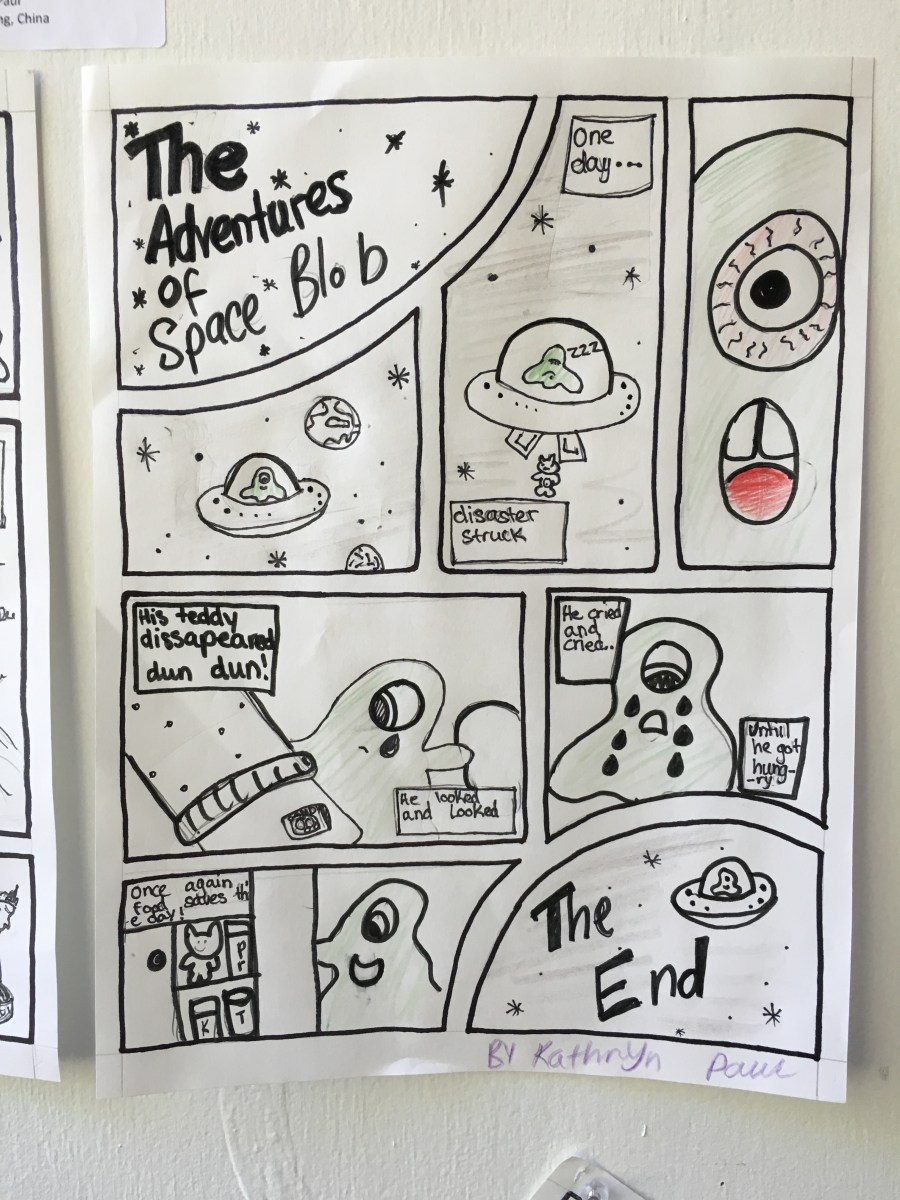 aul
ng, China
The
Adventures
of
Space Blob
One
day...
zzz
disaster
struck
His teddy
dissapeared
dun dun!
He looked
and Looked
He cried
and
cried..
Until
he got
hung-
-ry.
Once again
food solves th
e day!
Pr
K T
The
End
BY Kathryn Paul